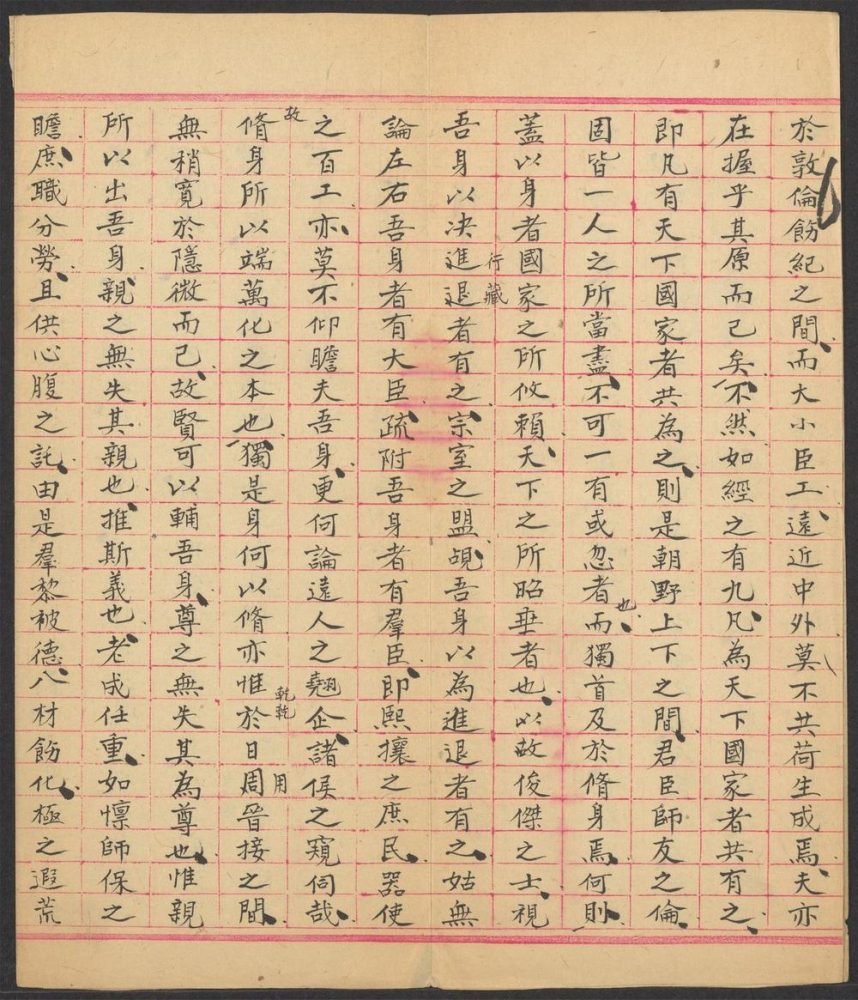 於敦倫飭紀之間而大小臣工遠近中外莫不共荷生成焉夫亦
在握乎其原而已矣不然如經之有九凡為天下國家者共有之
即凡有天下國家者共為之則是朝野上下之間君臣師友之倫
固皆一人之所當盡不可一有或忽者也而獨首及於脩身焉何則
蓋以身者國家之所攸賴天下之所昭垂者也以故俊傑之士視
吾身以決進退行藏者有之宗室之盟覘吾身以為進退者有之姑無
論左右吾身者有大臣疏附吾身者有羣臣即熙攘之庶民器使
之百工亦莫不仰瞻夫吾身更何論遠人之翹企諸侯之窺伺哉
故脩身所以端萬化之本也獨是身何以脩亦惟乾乾於日用周晉接之間
無稍寬於隱微而已故賢可以輔吾身尊之無失其為尊也惟親
所以出吾身親之無失其親也推斯義也老成任重如懍師保之
瞻庶職分勞且供心腹之託由是羣黎被德八材飭化極之遐荒